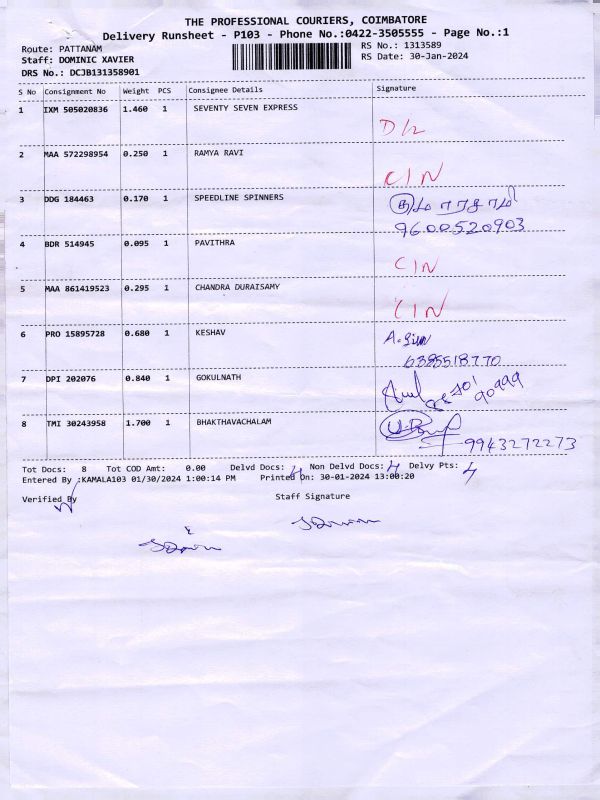 THE PROFESSIONAL COURIERS, COIMBATORE
Delivery Runsheet - P103 - Phone No.:0422-3505555 - Page No.:1
Route: PATTANAM RS No.: 1313589
Staff: DOMINIC XAVIER RS Date: 30-Jan-2024
DRS No.: DCJB131358901
S No Consignment No Weight PCS Consignee Details Signature
1 IXM 505020836 1.460 1 SEVENTY SEVEN EXPRESS
D/L
2 MAA 572298954 0.250 1 RAMYA RAVI
CIN
3 DDG 184463 0.170 1 SPEEDLINE SPINNERS
9600520903
4 BDR 514945 0.095 1 PAVITHRA
CIN
5 MAA 861419523 0.295 1 CHANDRA DURAISAMY
CIN
6 PRO 15895728 0.680 1 KESHAV
6385518770
7 DPI 202076 0.840 1 GOKULNATH
8 TMI 30243958 1.700 1 BHAKTHAVACHALAM
9943272273
Tot Docs: 8 Tot COD Amt: 0.00 Delvd Docs: 4 Non Delvd Docs: 4 Delvy Pts: 4
Entered By :KAMALA103 01/30/2024 1:00:14 PM Printed On: 30-01-2024 13:00:20
Verified By Staff Signature